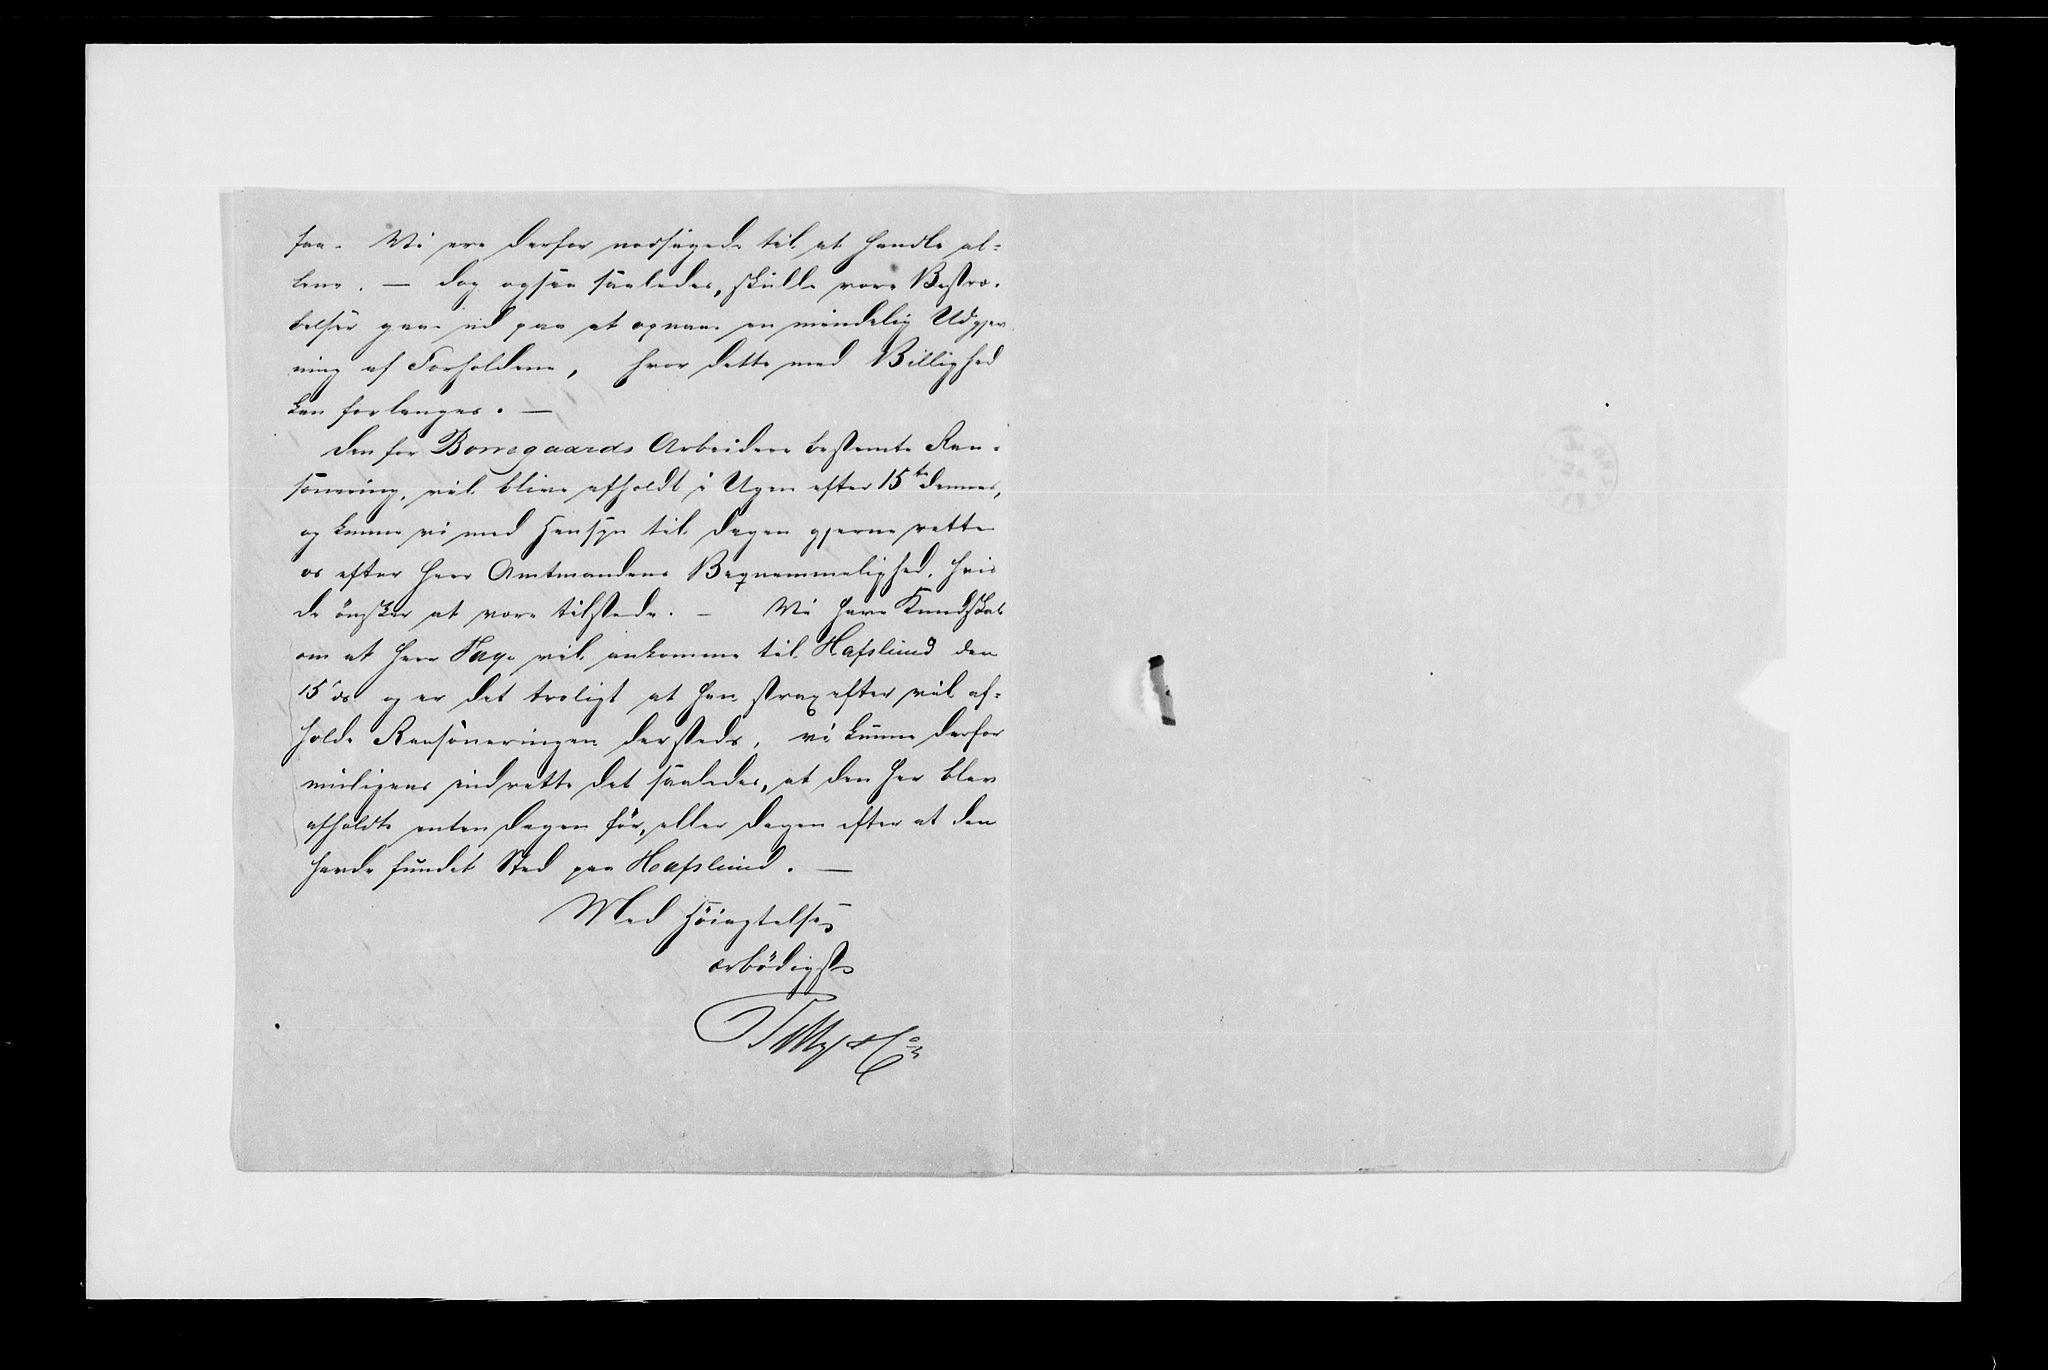 saa. Vi ere derfor nødsagede til at handle al=
lene. — Dog ogsaa saaledes, skulle vore Bestræ-
belser gaae ud paa at opnaae en mindelig Udgjæv
ning af Forholdene, hvor dette med Billighed
kan forlanges. —
Den for Borregaards Arbeidere bestemte Ran-
sonering, vil blive afholdt i Ugen efter 15te dennes,
og kunne vi med Hensyn til Dagen gjerne rette
os efter Herr Amtmandens Beqvemmelighed, hvis
De ønsker at være tilstede. — Vi have Kundskab
om at Herr Faye vil ankomme til Hafslund den
15 ds og er det troligt at han strax efter vil af=
holde Ransoneringen dersteds, vi kunne derfor
muligens indrette det saaledes, at den her blev
afholdt enten Dagen før, eller Dagen efter at den
havde fundet Sted paa Hafslund. —
Med Høiagtelse
ærbødigst